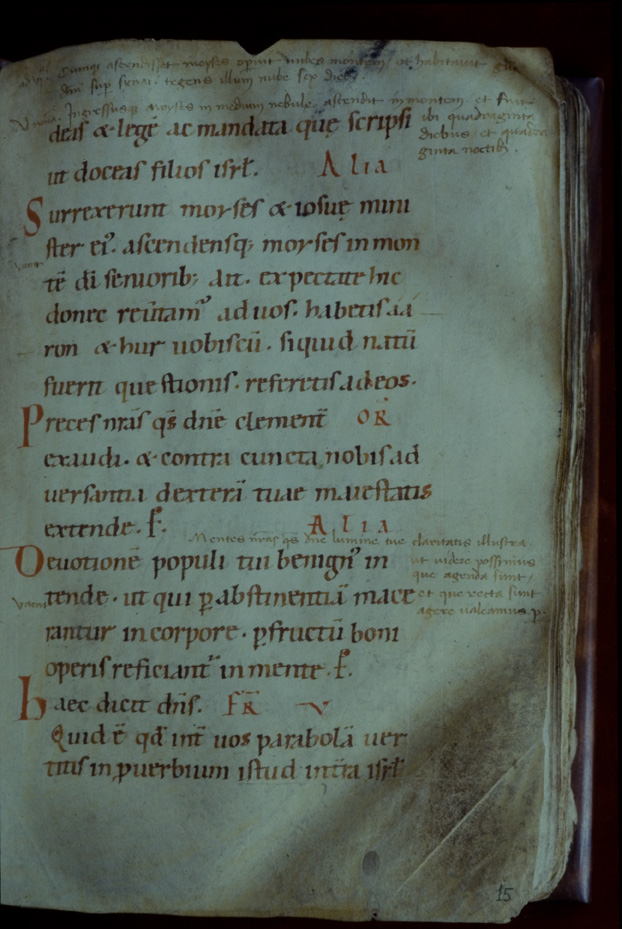 Cumq; ascendisset moyses opuit nubes montem, et habitavit gl̃a
dñi sup̃ sinai. tegens illum nube sex dieb;
Ingressusq; moyses in medium nebule, ascendit in montem. et fuit
ibi quadraginta
diebus, et quadra
ginta noctib;.
deas & legē ac mandata quę scripsi
ut doceas filios isrł. Alia
Surrexerunt moyses & iosuę mini
ster ei᾽. ascendensq; moyses in mon
tē dī seniorib; ait. expectate hic
donec reūtam᾽ ad uos. habetis aa
ron & hur uobiscū. siquid natū
fuerit questionis. referetis ad eos.
Preces nr̄as qs dnē clement̄ OR̄
exaudi. & contra cuncta nobis ad
uersantia dexterā tuae maiestatis
extende. P̄.
Alia
Mentes nr̄as qs dn̄e lumine tue claritatis illustra.
ut videre possimus
que agenda sunt,
et que recta sunt
agere valeamus. p.
Deuotionē populi tui benign᾽ in
tende. ut qui p̱ abstinentiā mace
rantur in corpore. p̱ fructū boni
operis reficiant᾽ in mente. P̄.
haec dicit dn̄s. FR̄ V
Quid ē qd̄ int̄ uos parabolā uer
titis in ꝓuerbium istud in tr̄a isrł
15